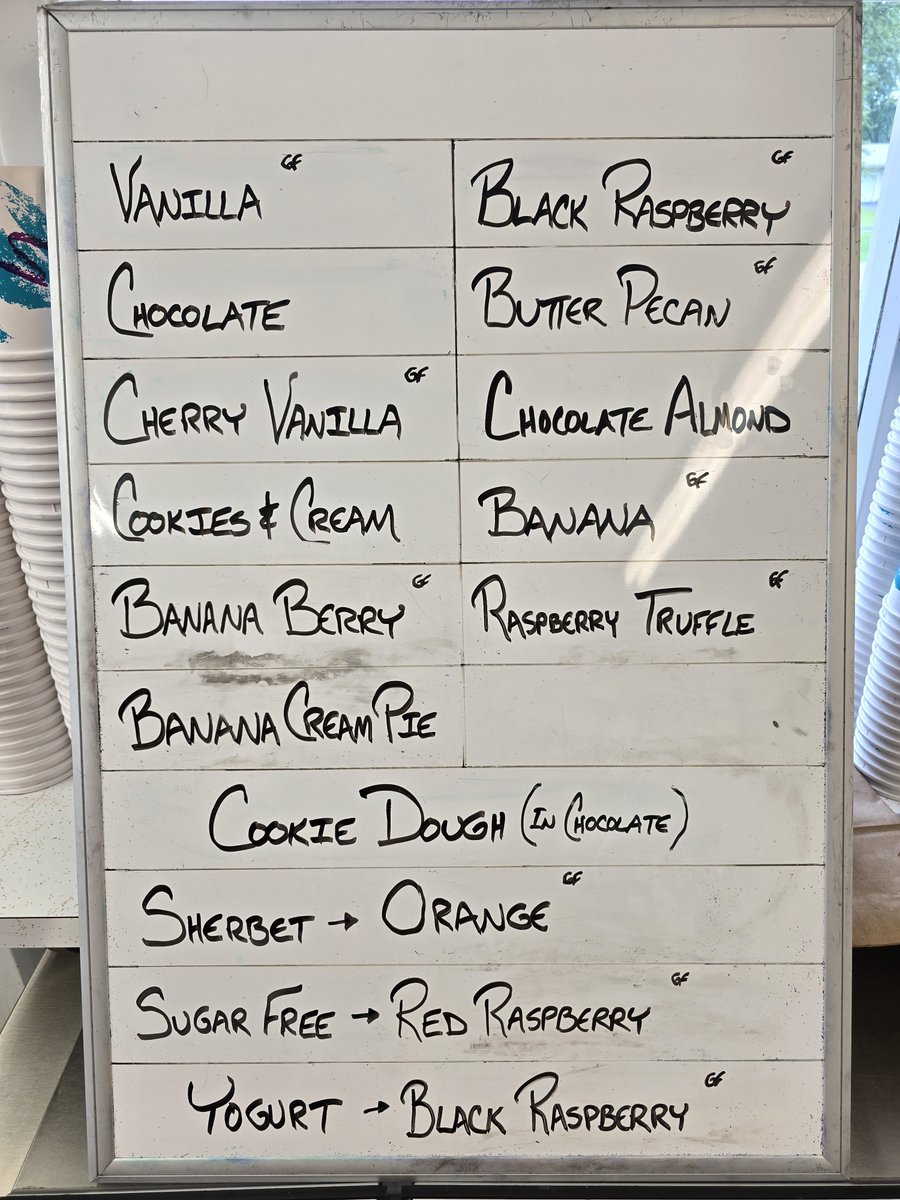 Vanilla GF
Black Raspberry GF
Chocolate
Butter Pecan GF
Cherry Vanilla GF
Chocolate Almond
Cookies & Cream
Banana GF
Banana Berry GF
Raspberry Truffle GF
Banana Cream Pie
Cookie Dough (In Chocolate)
Sherbet → Orange GF
Sugar Free → Red Raspberry GF
Yogurt → Black Raspberry GF